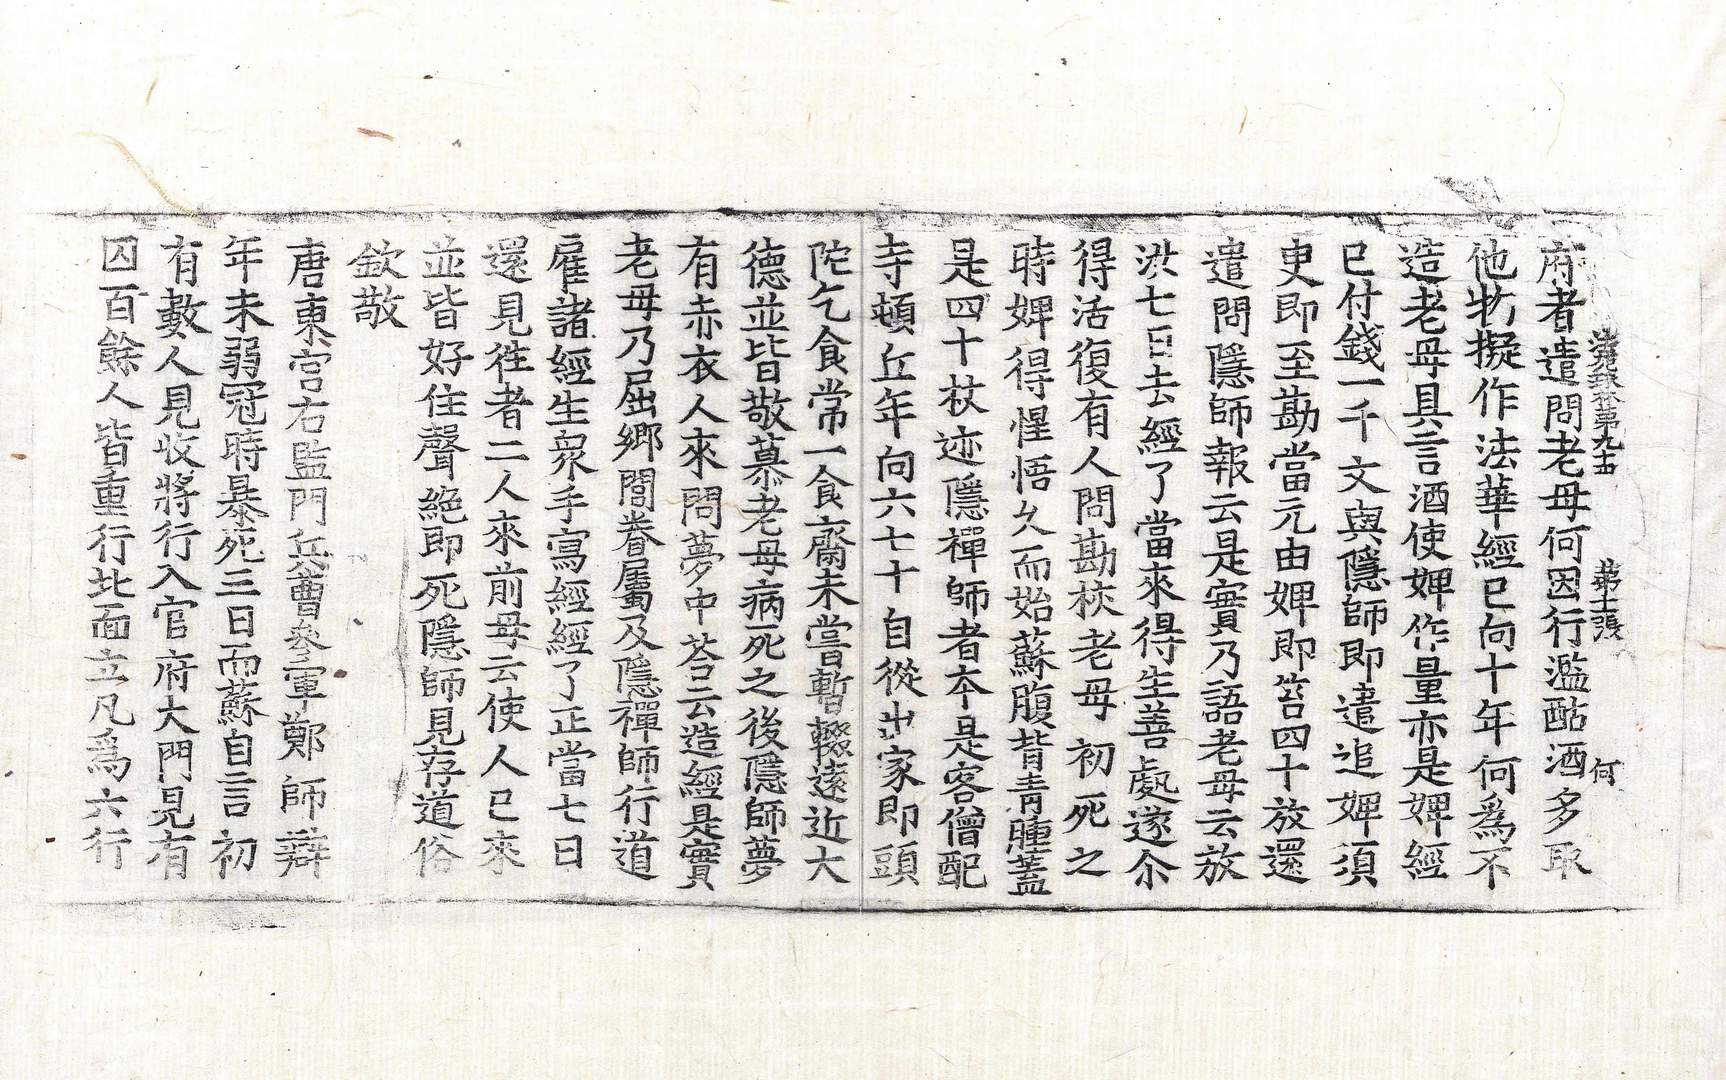 府者遣問老母何因行濫酤酒多取
法苑珠林第九十四 第十張 何
他物擬作法華經已向十年何爲不
造老母具言酒使婢作量亦是婢經
已付錢一千文與隱師即遣追婢須
叓即至勘當元由婢即笞四十放還
遣問隱師報云是實乃語老母云放
洪七日去經了當來得生善處遂尒
得活復有人問勘校老母初死之
時婢得惺悟久而始蘇腹背青腫蓋
是四十杖迹隱禪師者本是客僧配
寺頓丘年向六七十自從出家即頭
陀乞食常一食齋未嘗暫輟遠近大
德並皆敬慕老母病死之後隱師夢
有赤衣人來問夢中荅云造經是實
老母乃屈鄉閭眷屬及隱禪師行道
雇諸經生衆手寫經經了正當七日
還見徃者二人來前母云使人已來
並皆好住聲絶即死隱師見存道俗
欽敬
唐東宮右監門兵曹叅軍鄭師辯
年未弱冠時暴死三日而蘇自言初
有數人見收將行入官府大門見有
囚百餘人皆重行北面立凡爲六行